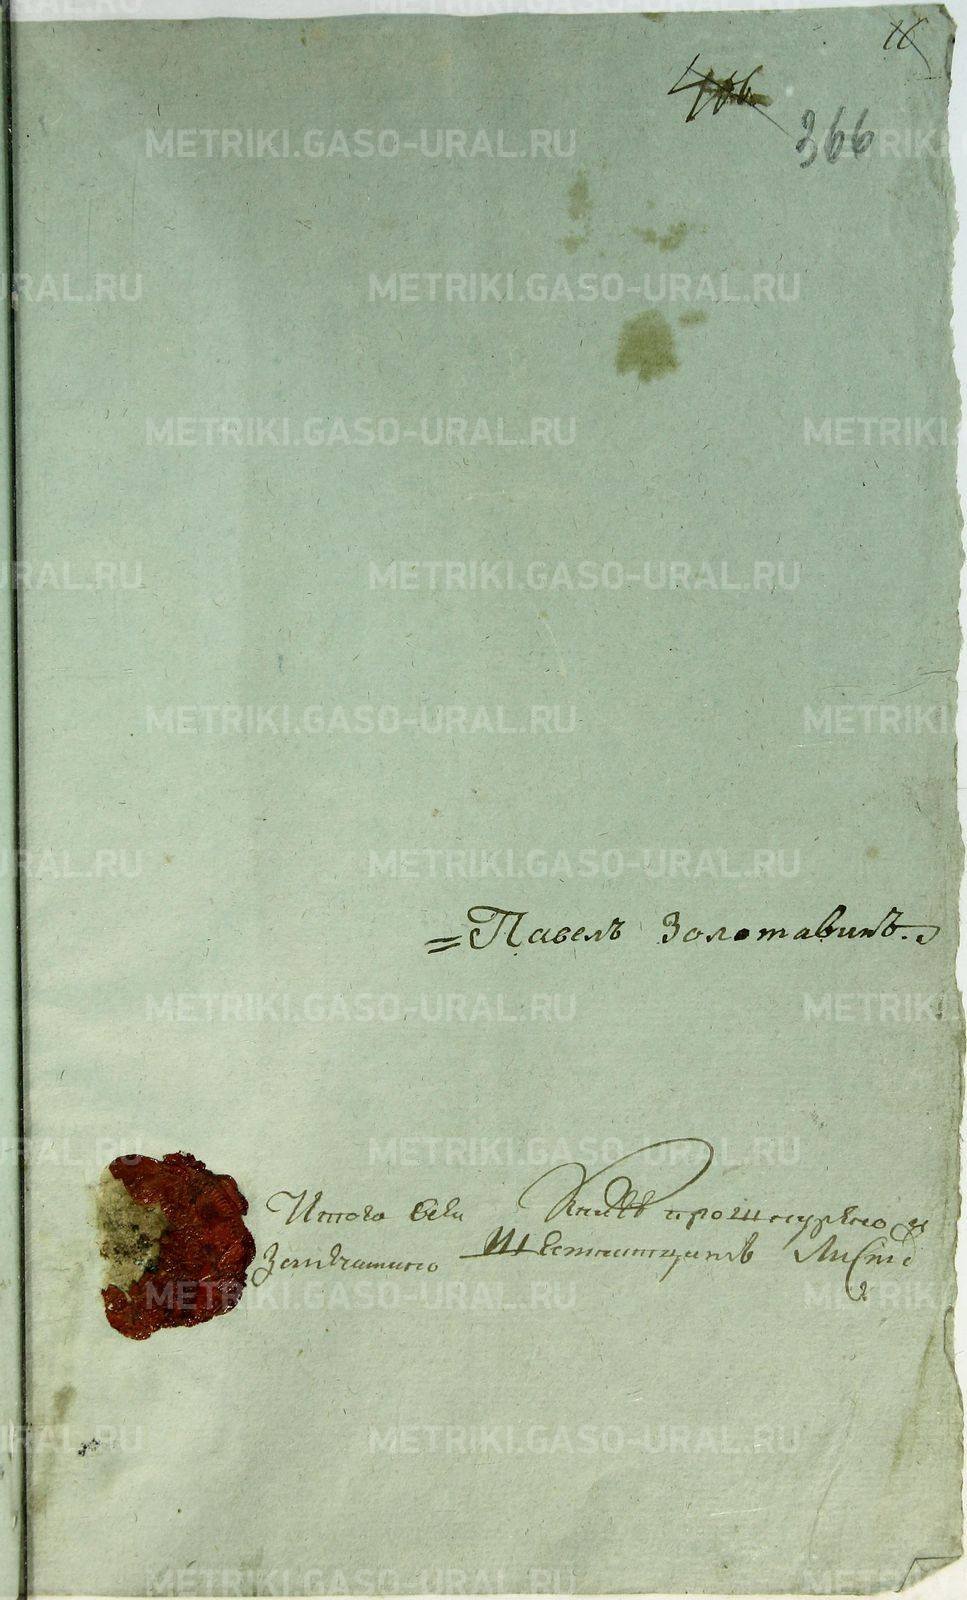 16
366
METRIKI.GASO-URAL.RU
= Павелъ Золотавинъ.
Итого всей Книге прошнурено и
Запечатано Шестнатцать Листо